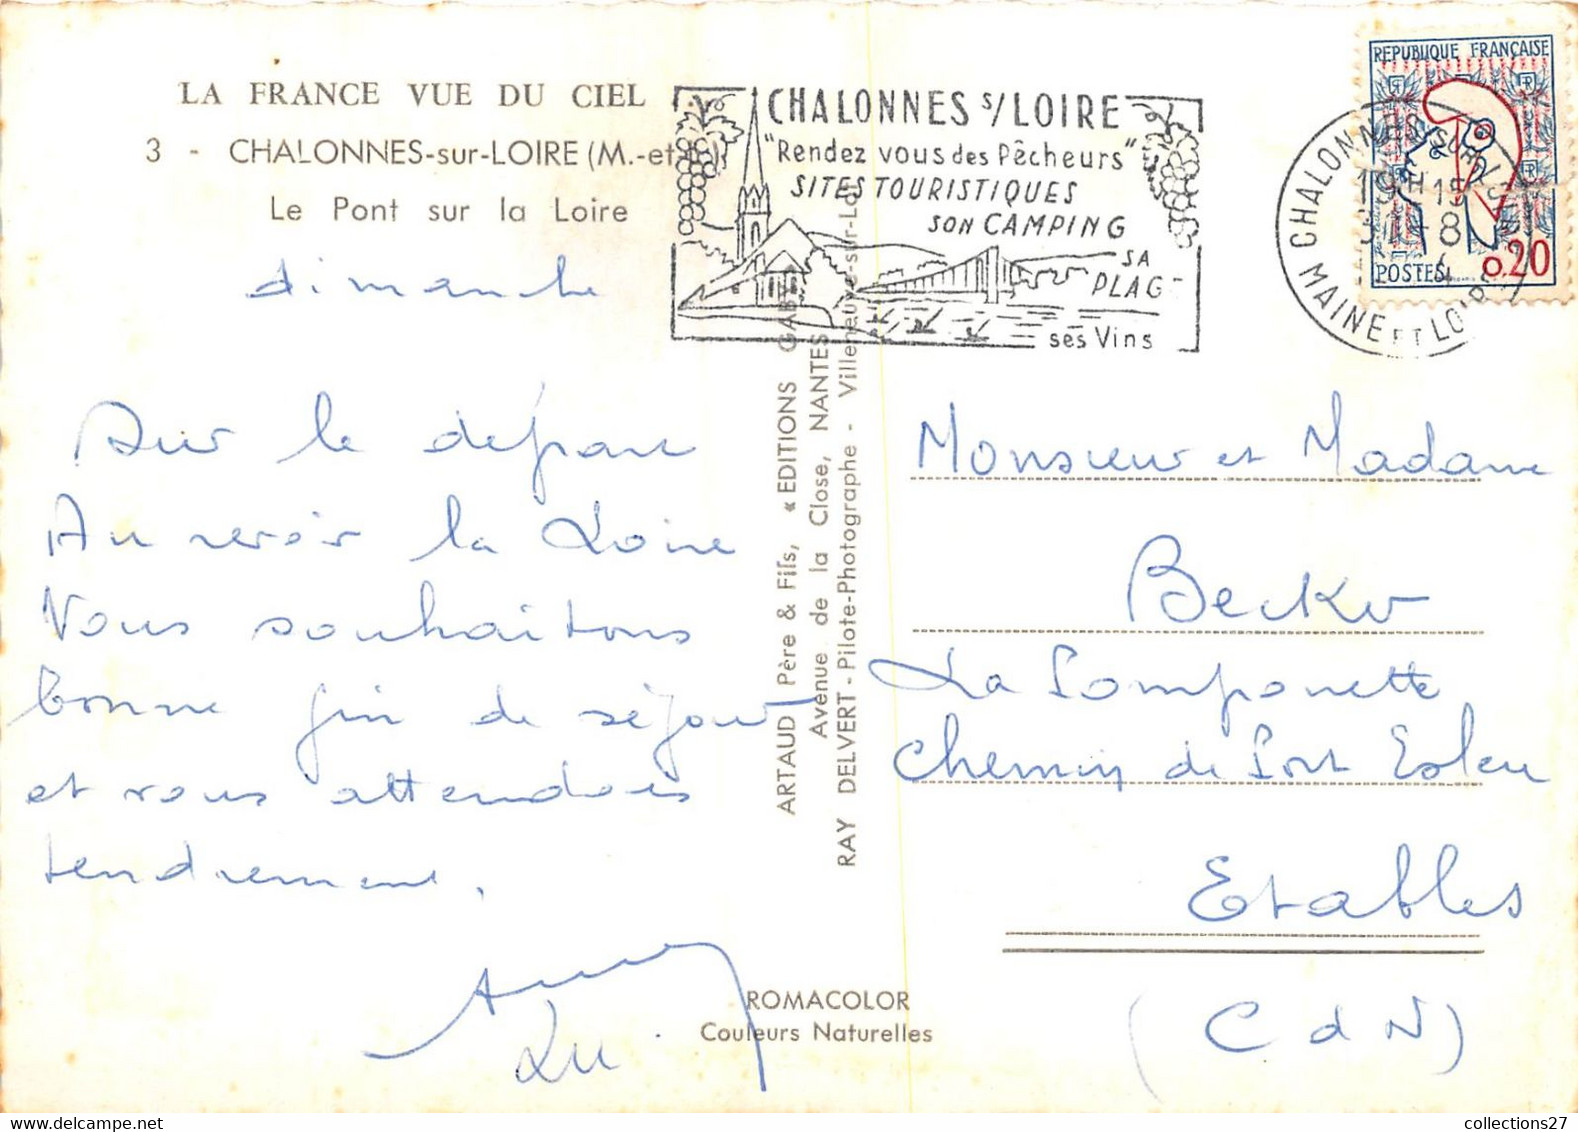 LA FRANCE VUE DU CIEL
3 - CHALONNES-sur-LOIRE (M.-et-L.)
Le Pont sur la Loire
CHALONNES s/LOIRE
"Rendez vous des Pêcheurs"
SITES TOURISTIQUES
SON CAMPING
SA
PLAG
ses Vins
REPUBLIQUE FRANÇAISE
POSTES 0.20
CHALONNES SUR LOIRE
19H15
31-8
MAINE ET LOIRE
dimanche
Sur le départ
Au revoir la Loire
Vous souhaitons
bonne fin de séjour
et vous attendons
tendrement.
Lu
ARTAUD Père & Fils, « EDITIONS GABY »
Avenue de la Close, NANTES
RAY DELVERT - Pilote-Photographe - Villeneuve-sur-Lot
ROMACOLOR
Couleurs Naturelles
Monsieur et Madame
Becker
La Pomponette
Chemin de Port Esleu
Etables
(C d N)
collections27